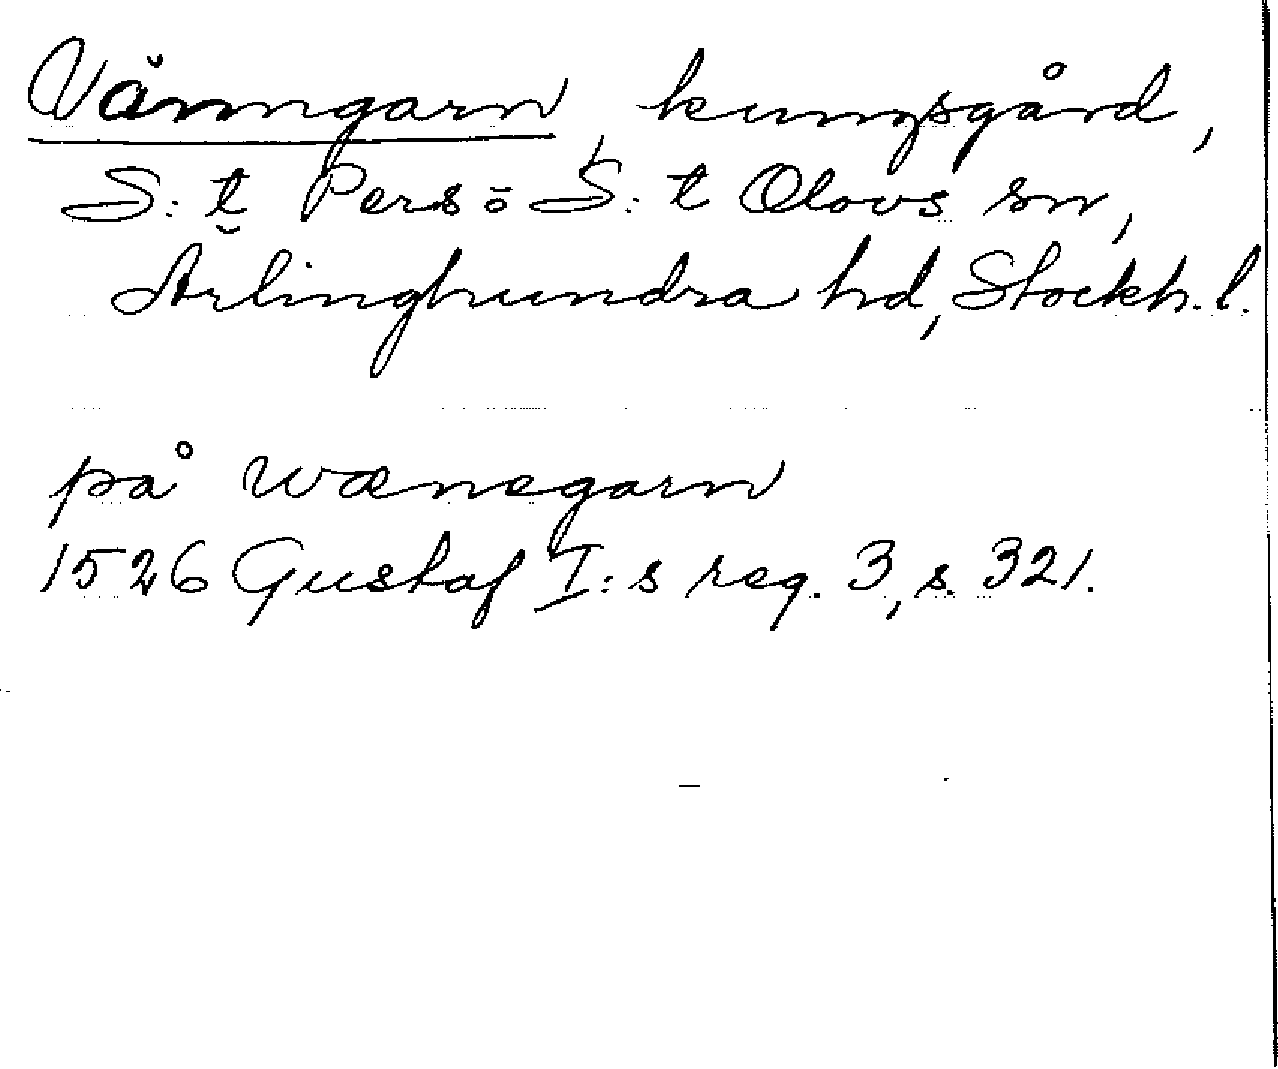 Vänngarn, kungsgård,
S:t Pers ö S:t Olovs sn,
Ärlinghundra hd, Stockh. l.
på wænegarn
1526 Gustaf I:s reg. 3, s. 321.